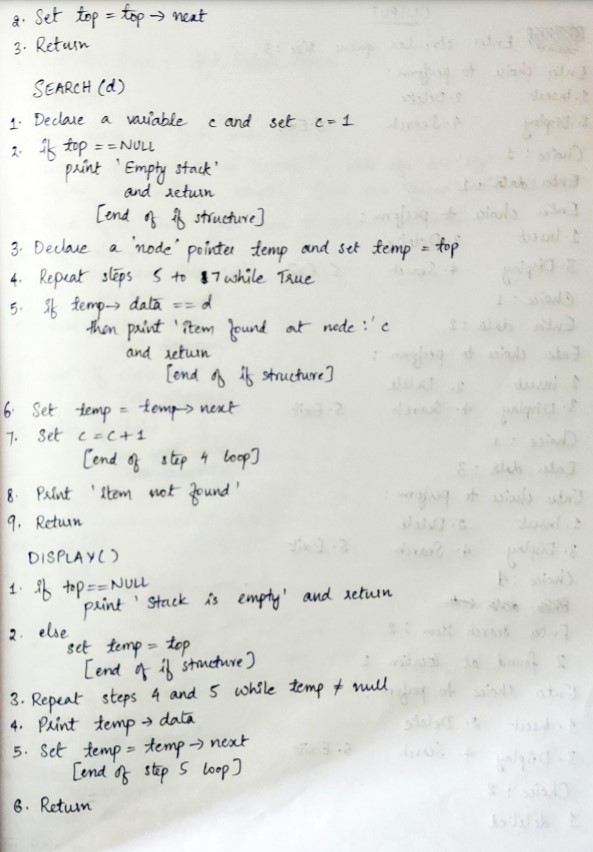 2. Set top = top → next
3. Return
SEARCH (d)
1. Declare a variable c and set c = 1
2. if top == NULL
print 'Empty stack'
and return
[end of if structure]
3. Declare a 'node' pointer temp and set temp = top
4. Repeat steps 5 to 7 while True
5. if temp → data == d
then print 'item found at node :' c
and return
[end of if structure]
6. Set temp = temp → next
7. Set c = c + 1
[end of step 4 loop]
8. Print 'item not found'
9. Return
DISPLAY()
1. if top == NULL
print 'Stack is empty' and return
2. else
set temp = top
[end of if structure)
3. Repeat steps 4 and 5 while temp ≠ null
4. Print temp → data
5. Set temp = temp → next
[end of step 5 loop]
6. Return